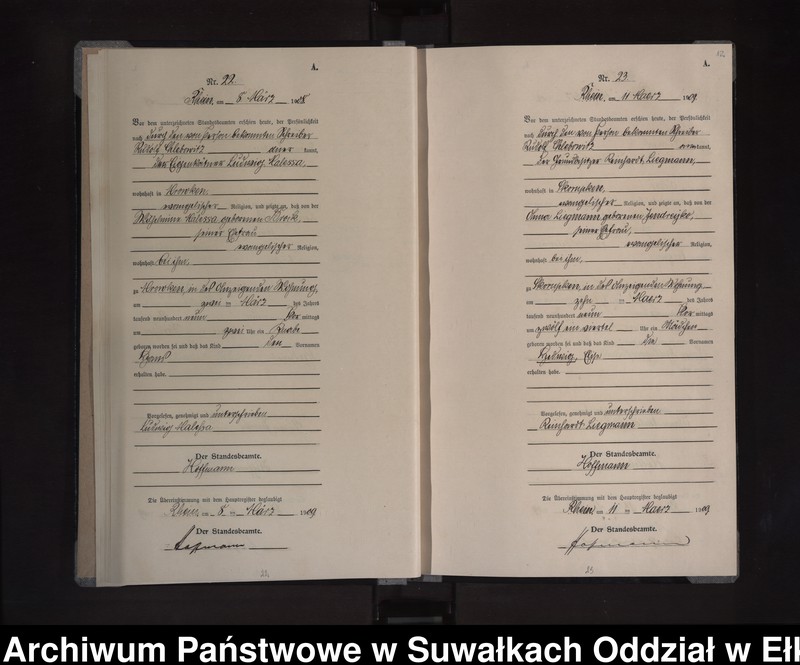 A.
Nr. 22
Rhein, am 8 März 190
Vor dem unterzeichneten Standesbeamten erschien heute, der Persönlichkeit
nach durch den von Person bekannten Schreiber
Rudolf anerkannt,
der Eigenkätner Ludwig Malessa,
wohnhaft in
evangelischer Religion, und zeigte an, daß von der
Wilhelmine Malessa geborenen
seiner Ehefrau
evangelischer Religion,
wohnhaft bei ihm,
zu in des Anzeigenden Wohnung,
am zwei ten März des Jahres
tausend neunhundert neun Vor mittags
um zwei Uhr ein Knabe
geboren worden sei und daß das Kind den Vornamen
erhalten habe.
Vorgelesen, genehmigt und unterschrieben
Ludwig Malessa
Der Standesbeamte.
Hoffmann
Die Übereinstimmung mit dem Hauptregister beglaubigt
Rhein, am 8 ten März 1909
Der Standesbeamte.
Hoffmann
22
12
A.
Nr. 23
Rhein, am 11 Maerz 1909
Vor dem unterzeichneten Standesbeamten erschien heute, der Persönlichkeit
nach durch den von Person bekannten Schreiber
Rudolf anerkannt,
der Grundbesitzer Reinhardt Liegmann,
wohnhaft in Skomatzken,
evangelischer Religion, und zeigte an, daß von der
Anna Liegmann geborenen Jendreyko,
seiner Ehefrau,
evangelischer Religion,
wohnhaft bei ihm,
zu Skomatzken, in des Anzeigenden Wohnung
am zehn ten Maerz des Jahres
tausend neunhundert neun Vor mittags
um zwölf ein viertel Uhr ein Mädchen
geboren worden sei und daß das Kind die Vornamen
Hedwig,
erhalten habe.
Vorgelesen, genehmigt und unterschrieben
Reinhardt Liegmann
Der Standesbeamte.
Hoffmann
Die Übereinstimmung mit dem Hauptregister beglaubigt
Rhein, am 11 ten Maerz 1909
Der Standesbeamte.
Hoffmann
23
Archiwum Państwowe w Suwałkach Oddział w Ełk